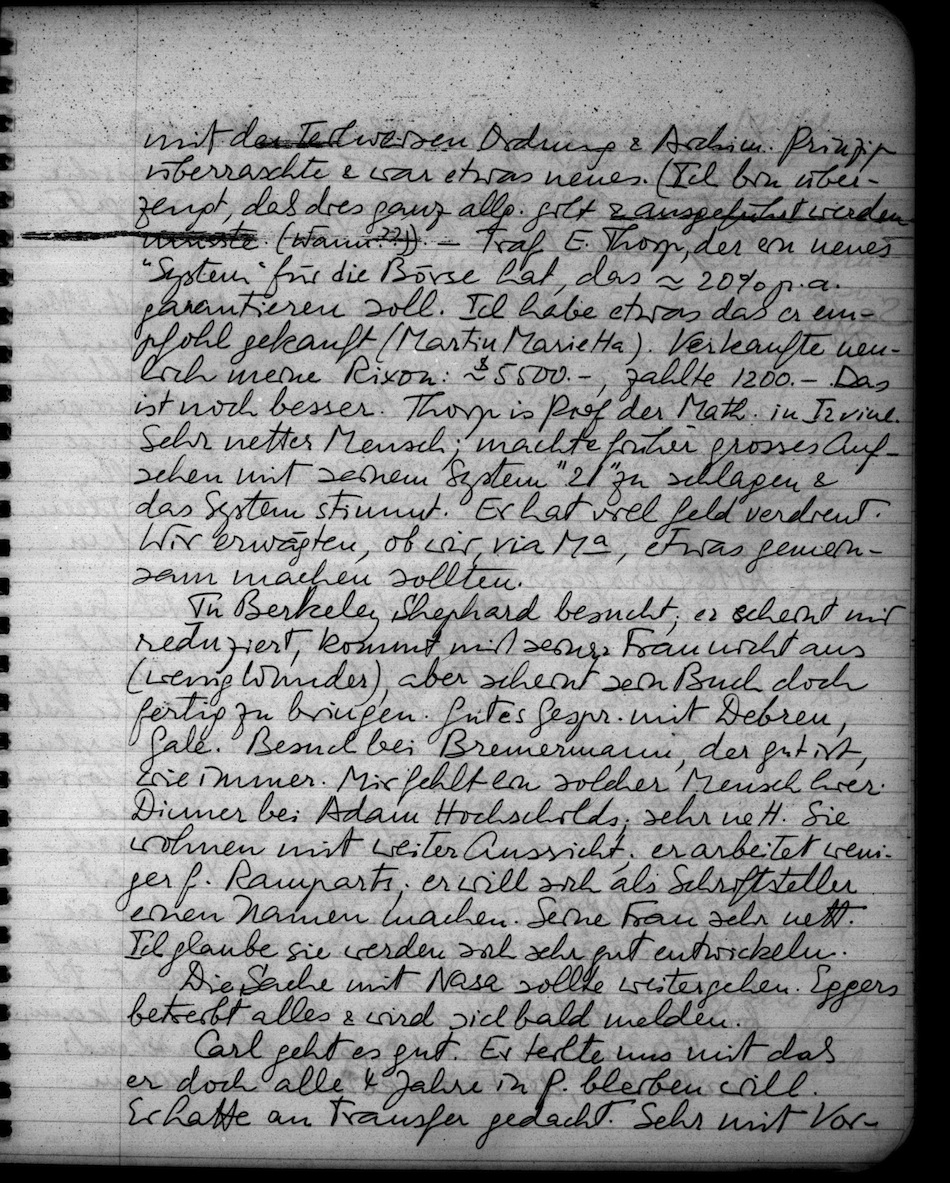 mit der Teilweisen Ordnung & Archim. Prinzip
überraschte & war etwas neues. (Ich bin über-
zeugt, daß dies ganz allg. gilt & ausgeführt werden
müsste. (Wann??)). — Traf E. Thorp, der ein neues
"System" für die Börse hat, das ≈ 20% p.a.
garantieren soll. Ich habe etwas das er em-
pfohl gekauft (Martin Marietta). Verkaufte neu-
lich meine Rixon: ≈ $5500.–, zahlte 1200.– Das
ist noch besser. Thorp is Prof der Math. in Irvine.
Sehr netter Mensch; machte früher grosses Auf-
sehen mit seinem System "21" zu schlagen &
das System stimmt. Er hat viel Geld verdient.
Wir erwägten, ob wir, via Ma, etwas gemein-
sam machen sollten.
In Berkeley Shephard besucht; er scheint mir
reduziert, kommt mit seiner Frau nicht aus
(wenig Wunder), aber scheint sein Buch doch
fertig zu bringen. Gutes Gespr. mit Debreu,
Gale. Besuch bei Bremermann, der gut ist,
wie immer. Mir fehlt ein solcher Mensch hier.
Dinner bei Adam Hochschilds; sehr nett. Sie
wohnen mit weiter Aussicht; er arbeitet weni-
ger f. Ramparts; er will sich als Schriftsteller
einen Namen machen. Seine Frau sehr nett.
Ich glaube sie werden sich sehr gut entwickeln.
Die Sache mit Nasa sollte weitergehen. Eggers
betreibt alles & wird sich bald melden.
Carl geht es gut. Er teilte uns mit das
er doch alle 4 Jahre in P. bleiben will.
Er hatte an Transfer gedacht. Sehr mit Vor-